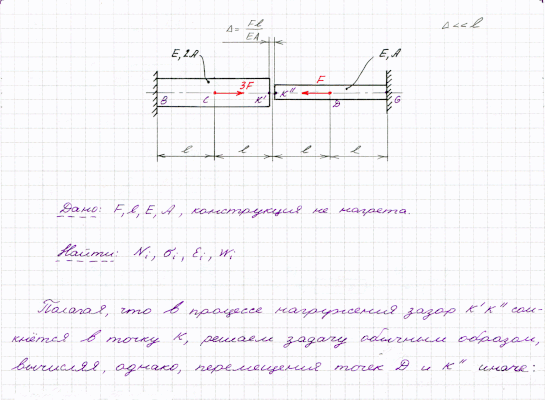 Δ = Fl/EA
Δ << l
E, 2A
E, A
3F
F
B
C
K'
K"
D
G
l
l
l
l
Дано: F, l, E, A, конструкция не нагрета.
Найти: Nᵢ, σᵢ, εᵢ, Wᵢ
Полагая, что в процессе нагружения зазор K'K" сом-
кнётся в точку K, решаем задачу обычным образом,
вычисляя, однако, перемещения точек D и K" иначе: